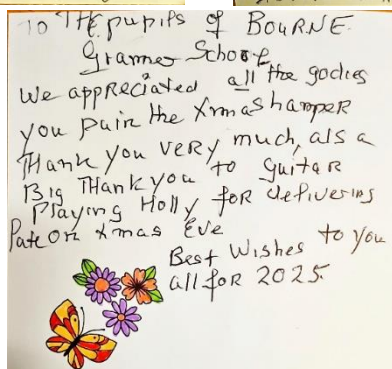 TO THE pupils of BOURNE
Grammer School
We appreciated all the godies
you pain the Xmas hamper
THank you very much, als a
Big THank you to guitar
Playing Holly for delivering
late on Xmas Eve
Best Wishes to you
all for 2025.